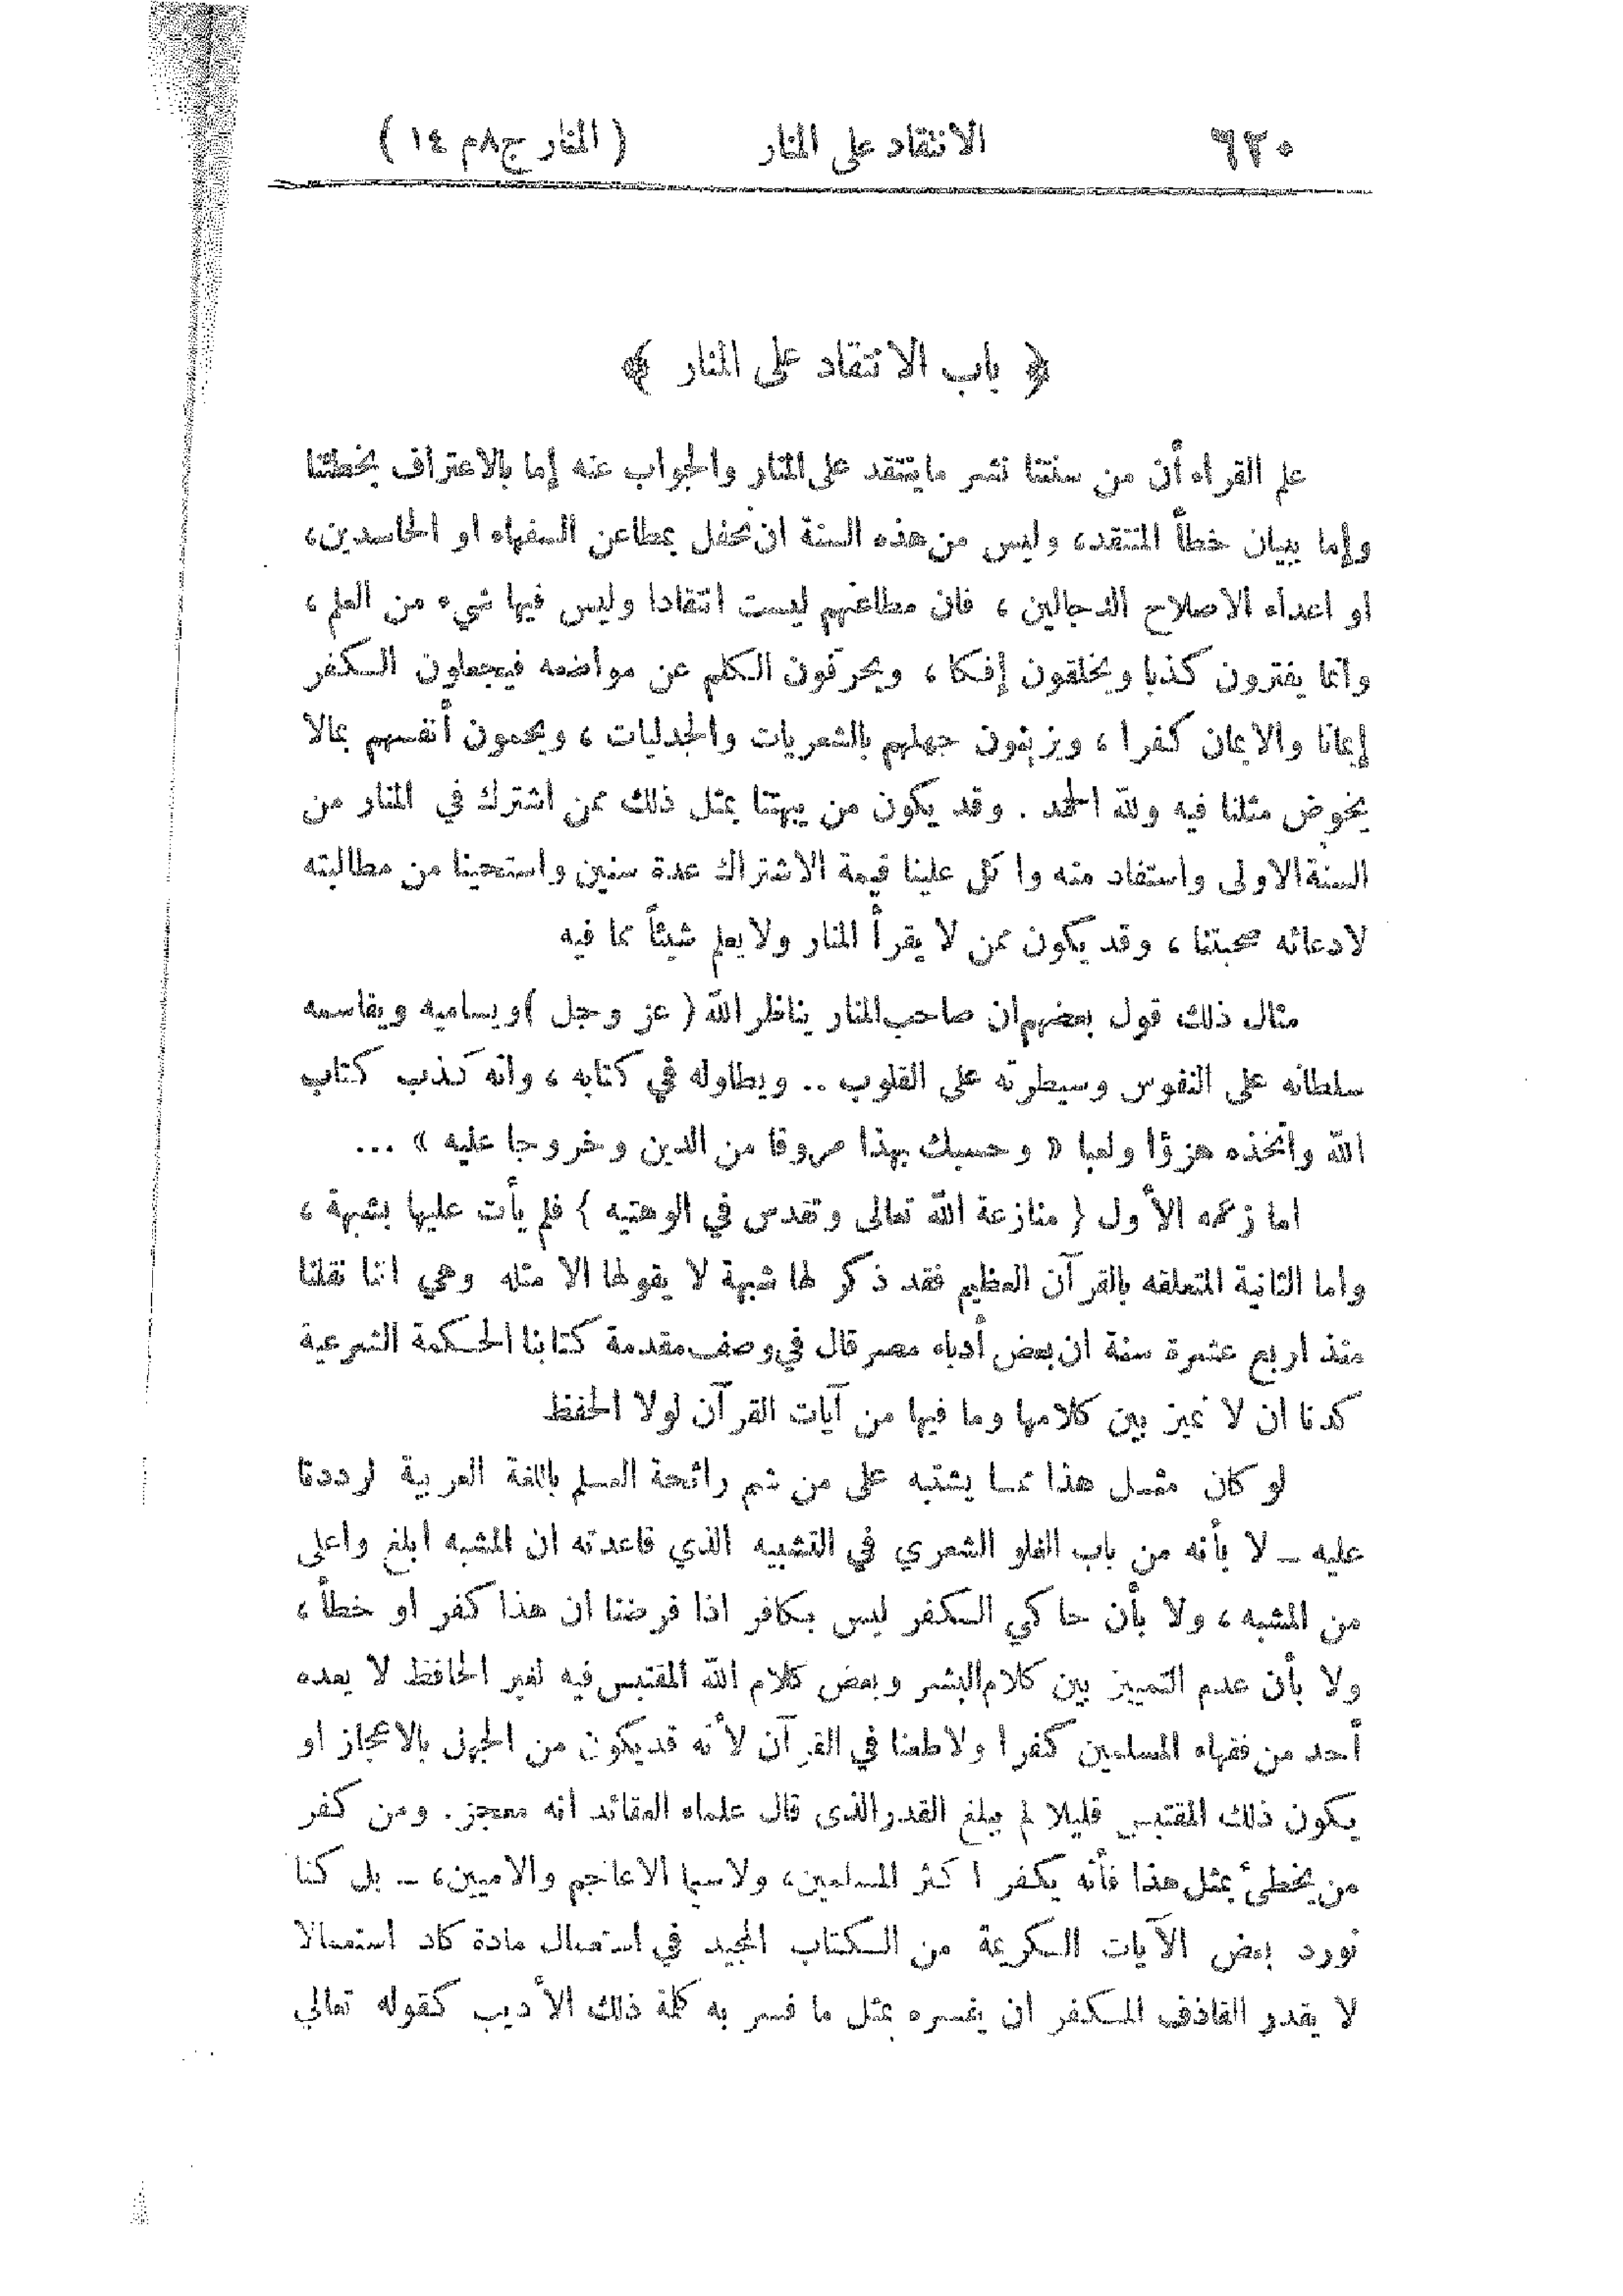 ٦٢٠ الانتقاد على المنار ( المنار ج٨ م ١٤ )
﴿ باب الانتقاد على المنار ﴾
علم القراء أن من سنتنا نشر ما ينتقد على المنار والجواب عنه إما بالاعتراف بخطئنا
وإما ببيان خطأ المنتقد، وليس من هذه السنة ان نحفل بمطاعن السفهاء او الحاسدين،
او اعداء الاصلاح الدجالين ، فان مطاعنهم ليست انتقادا وليس فيها شيء من العلم ،
وانما يفترون كذبا ويخلقون إفكا ، ويحرفون الكلم عن مواضعه فيجعلون الكفر
إيمانا والايمان كفرا ، ويزينون جهلهم بالشعريات والجدليات ، ويحمون أنفسهم بمالا
يخوض مثلنا فيه ولله الحمد . وقد يكون من يبهتنا بمثل ذلك ممن اشترك في المنار من
السنة الاولى واستفاد منه واكل علينا قيمة الاشتراك عدة سنين واستحينا من مطالبته
لادعائه محبتنا ، وقد يكون ممن لا يقرأ المنار ولا يعلم شيئاً مما فيه
مثال ذلك قول بعضهم ان صاحب المنار يناظر الله ( عز وجل ) ويساميه ويقاسمه
سلطانه على النفوس وسيطرته على القلوب .. ويطاوله في كتابه ، وانه كذب كتاب
الله واتخذه هزؤا ولعبا « وحسبك بهذا مروقا من الدين وخروجا عليه » ...
اما زعمه الأول ( منازعة الله تعالى وتقدس في الوهتيه ) فلم يأت عليها بشبهة ،
واما الثانية المتعلقه بالقرآن العظيم فقد ذكر لها شبهة لا يقولها الا مثله وهي اننا نقلنا
منذ اربع عشرة سنة ان بعض أدباء مصر قال في وصف مقدمة كتابنا الحكمة الشرعية
كدنا ان لا نميز بين كلامها وما فيها من آيات القرآن لولا الحفظ
لو كان مثل هذا مما يشتبه على من شم رائحة العلم باللغة العربية لرددنا
عليه ـ لا بأنه من باب الغلو الشعري في التشبيه الذي قاعدته ان المشبه ابلغ واعلى
من المشبه ، ولا بأن حاكي الكفر ليس بكافر اذا فرضنا ان هذا كفر او خطأ ،
ولا بأن عدم التمييز بين كلام البشر وبعض كلام الله المقتبس فيه لغير الحافظ لا يعده
أحد من فقهاء المسلمين كفرا ولا طعنا في القرآن لأنه قد يكون من الجهل بالاعجاز او
يكون ذلك المقتبس قليلا لم يبلغ القدر الذى قال علماء العقائد انه معجز . ومن كفر
من يخطئ بمثل هذا فأنه يكفر اكثر المسلمين، ولاسيما الاعاجم والاميين، ـ بل كنا
نورد بعض الآيات الكريمة من الكتاب المجيد في استعمال مادة كاد استعمالا
لا يقدر القاذف المكفر ان يفسره بمثل ما فسر به كلمة ذلك الأديب كقوله تعالي